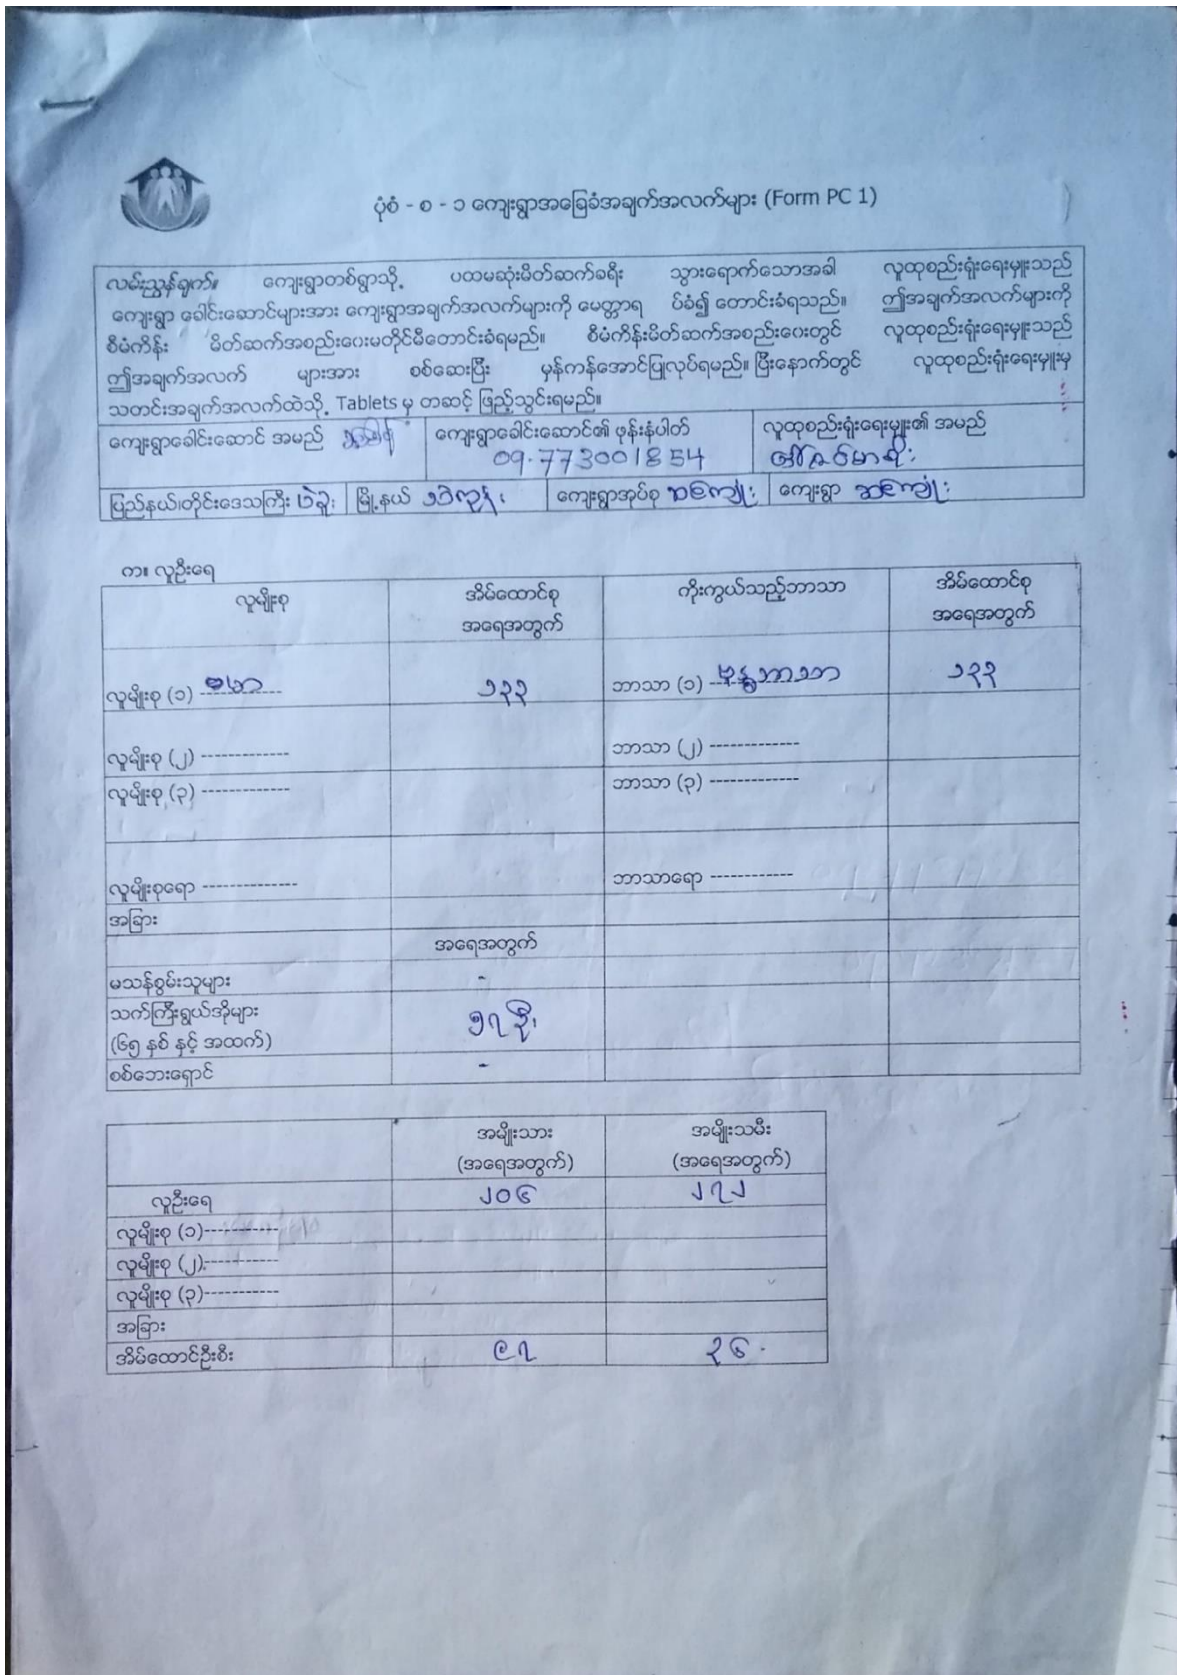 ပုံစံ - စ - ၁ ကျေးရွာအခြေခံအချက်အလက်များ (Form PC 1)
လမ်းညွှန်ချက်။ ကျေးရွာတစ်ရွာသို့ ပထမဆုံးမိတ်ဆက်ခရီး သွားရောက်သောအခါ လူထုစည်းရုံးရေးမှူးသည်
ကျေးရွာ ခေါင်းဆောင်များအား ကျေးရွာအချက်အလက်များကို မေတ္တာရ ပ်ခံ၍ တောင်းခံရသည်။ ဤအချက်အလက်များကို
စီမံကိန်း မိတ်ဆက်အစည်းဝေးမတိုင်မီတောင်းခံရမည်။ စီမံကိန်းမိတ်ဆက်အစည်းဝေးတွင် လူထုစည်းရုံးရေးမှူးသည်
ဤအချက်အလက် များအား စစ်ဆေးပြီး မှန်ကန်အောင်ပြုလုပ်ရမည်။ ပြီးနောက်တွင် လူထုစည်းရုံးရေးမှူးမှ
သတင်းအချက်အလက်ထဲသို့ Tablets မှ တဆင့် ဖြည့်သွင်းရမည်။
ကျေးရွာခေါင်းဆောင် အမည် ကျေးရွာခေါင်းဆောင်၏ ဖုန်းနံပါတ် လူထုစည်းရုံးရေးမှူး၏ အမည်
09.773001854 ဒေါ်ဇင်မာစိုး
ပြည်နယ်၊တိုင်းဒေသကြီး ပဲခူး မြို့နယ် ဒိုက်ဦး ကျေးရွာအုပ်စု ကျေးရွာ
က။ လူဦးရေ
လူမျိုးစု အိမ်ထောင်စု ကိုးကွယ်သည့်ဘာသာ အိမ်ထောင်စု
အရေအတွက် အရေအတွက်
လူမျိုးစု (၁) ဗမာ ၁၃၃ ဘာသာ (၁) ဗုဒ္ဓဘာသာ ၁၃၃
လူမျိုးစု (၂) ------------- ဘာသာ (၂) -------------
လူမျိုးစု (၃) ------------- ဘာသာ (၃) -------------
လူမျိုးစုရော -------------- ဘာသာရော ------------
အခြား
အရေအတွက်
မသန်စွမ်းသူများ -
သက်ကြီးရွယ်အိုများ ၅၇ ဦး
(၆၅ နှစ် နှင့် အထက်)
စစ်ဘေးရှောင် -
အမျိုးသား အမျိုးသမီး
(အရေအတွက်) (အရေအတွက်)
လူဦးရေ ၂၀၆ ၂၇၂
လူမျိုးစု (၁)-----------
လူမျိုးစု (၂)-----------
လူမျိုးစု (၃)-----------
အခြား
အိမ်ထောင်ဦးစီး ၉၇ ၃၆